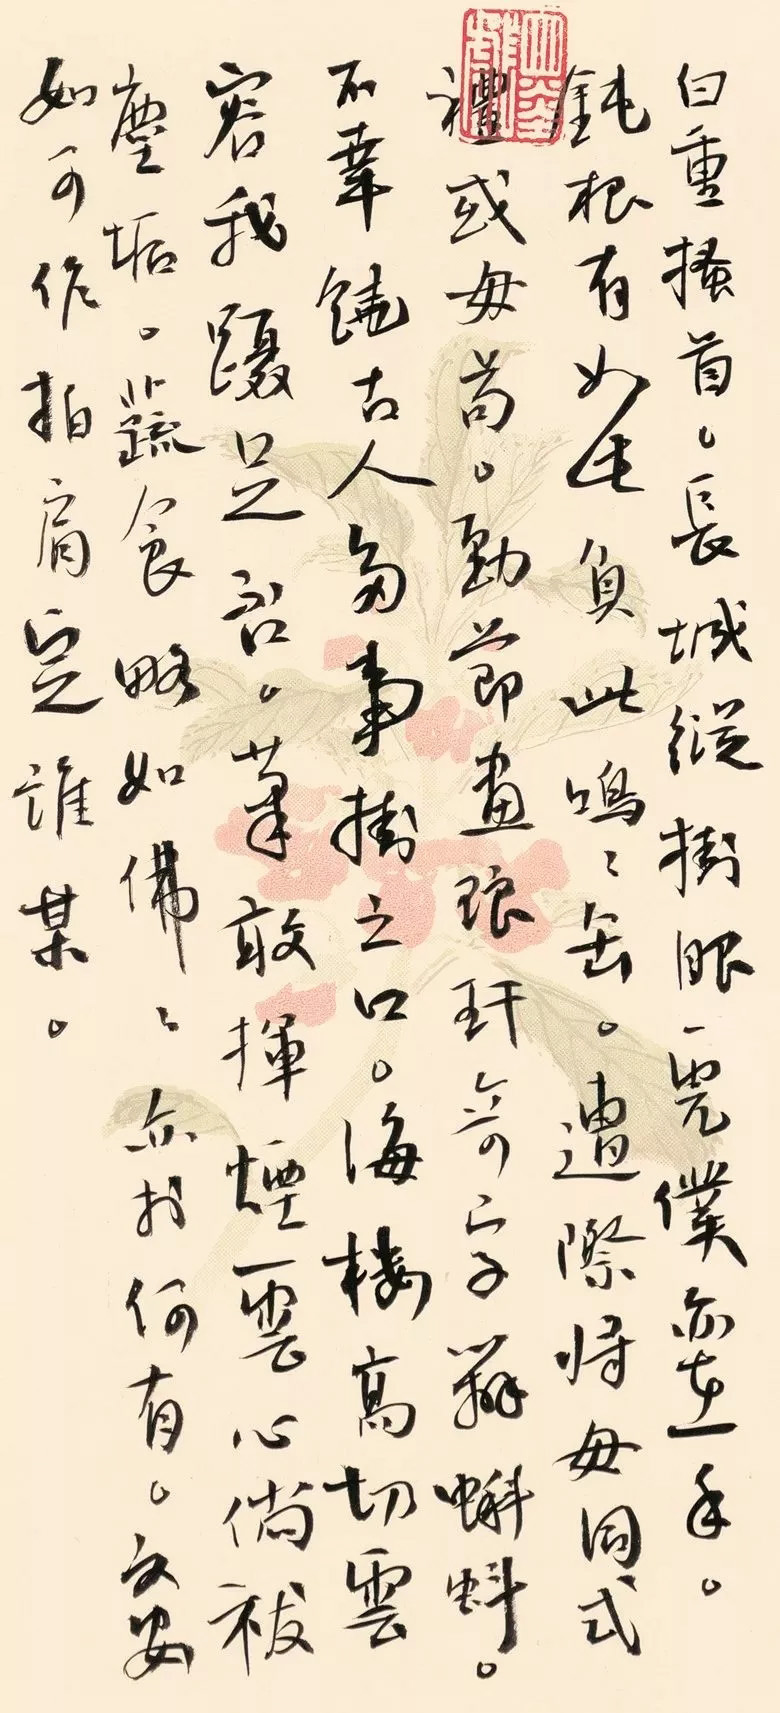 白重搔首。長城縱樹眼僕亦在手。
鈍根有如負此鳴〻缶。遭際將毋同式
禮或毋苟。勁節畫琅玕奇字辨蝌蚪。
不幸饒古人多事掛之口。海樓高切雲
容我躡足否。筆敢揮煙雲心倘祓
塵垢。蔬食略如佛〻亦於何有。文
如可作拍肩定誰某。